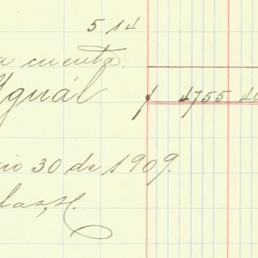 5 14
a cuenta.
Ygual $ 4755 40
io 30 de 1909.
las, H.